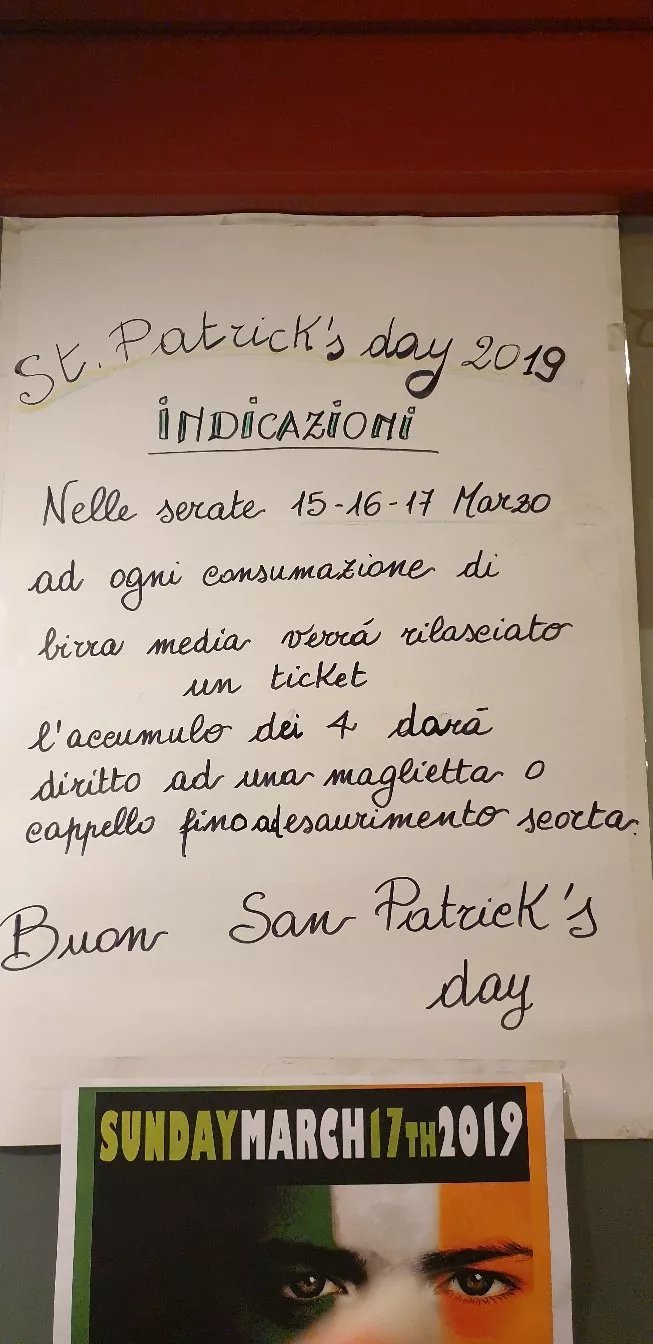 St. Patrick's day 2019
INDICAZIONI
Nelle serate 15-16-17 Marzo
ad ogni consumazione di
birra media verrá rilasciato
un ticket
l'accumulo dei 4 dará
diritto ad una maglietta o
cappello fino ad esaurimento scorta.
Buon San Patrick's
day
SUNDAY MARCH 17TH 2019